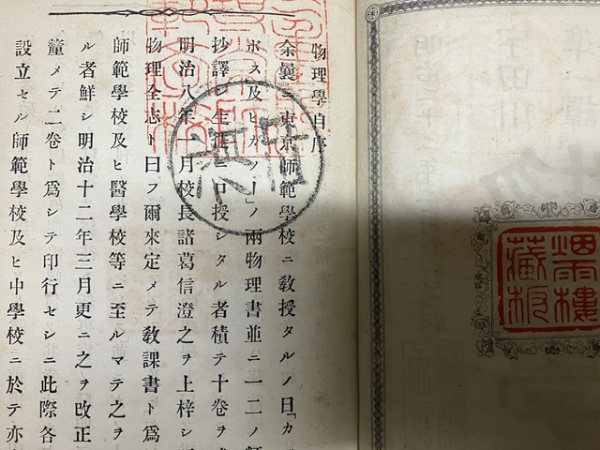 樓
藏板
物理學自序
余曩ニ東京師範學校ニ敎授タルノ日「カ
ボス及ヒ ノ兩物理書並ニ一二ノ
抄譯シ生徒ニ口授シタル者積テ十卷ヲ
明治八年一月校長諸葛信澄之ヲ上梓シ
物理全志ト曰フ爾來定メテ敎課書ト爲
師範學校及ヒ醫學校等ニ至ルマテ之ヲ
ル者鮮シ明治十二年三月更ニ之ヲ改正
釐メテ二卷ト爲シテ印行セシニ此際各
設立セル師範學校及ヒ中學校ニ於テ亦